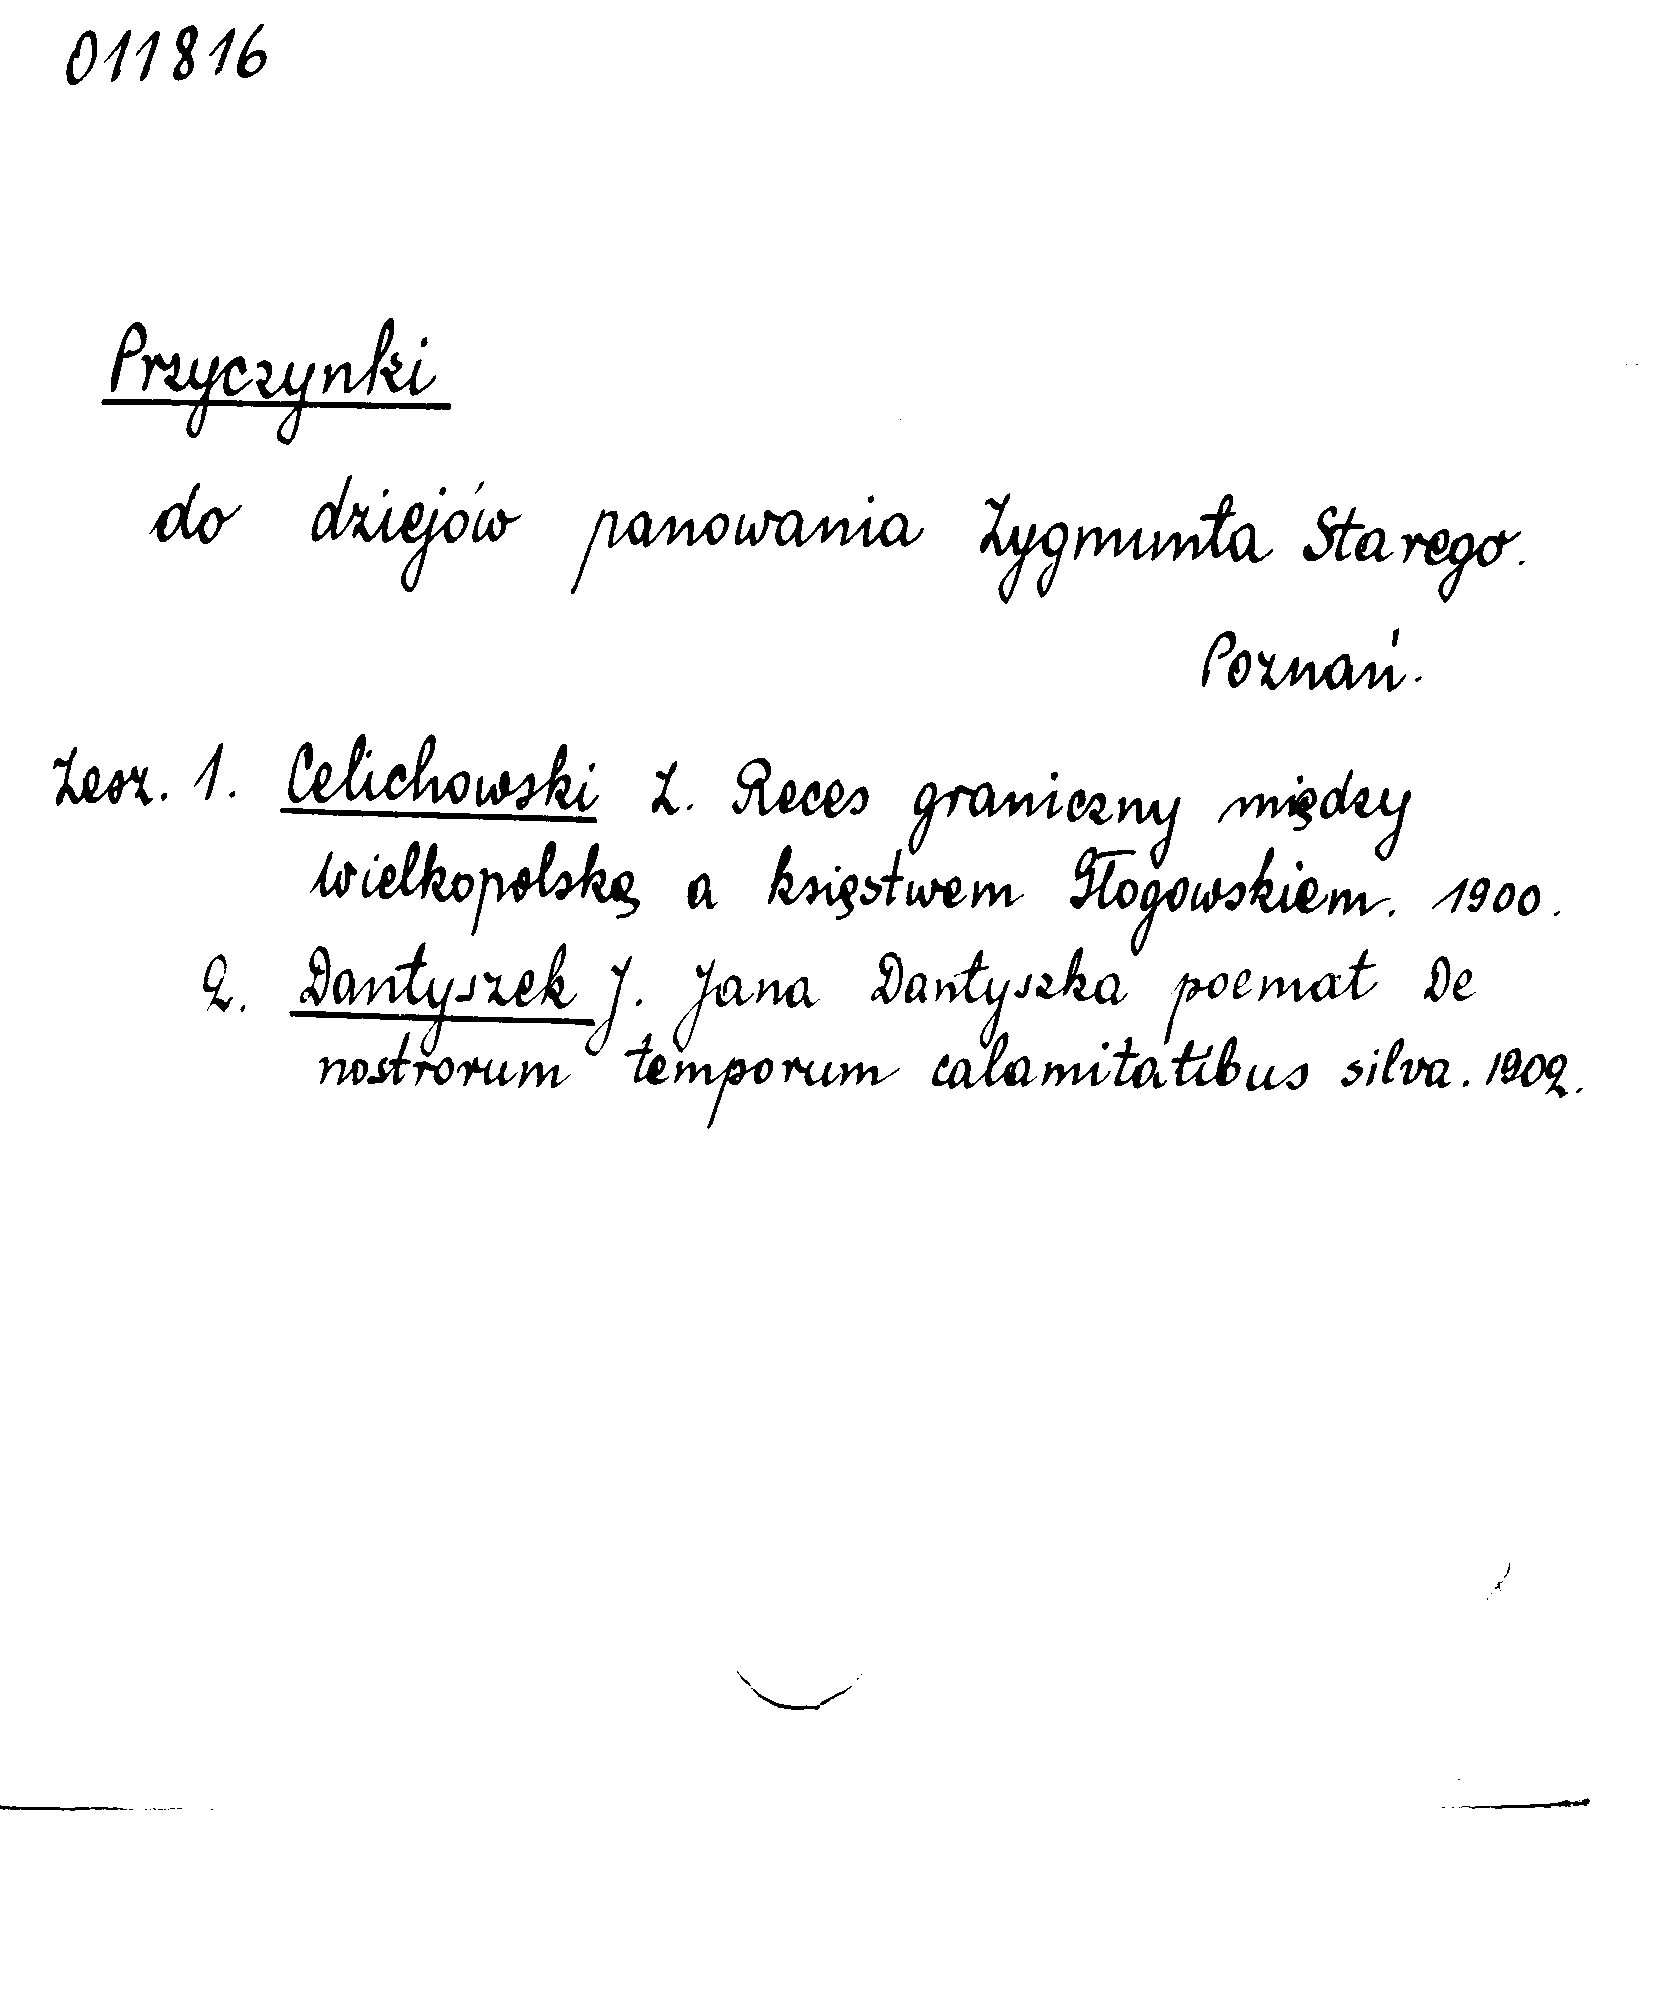 011816
Przyczynki
do dziejów panowania Zygmunta Starego.
Poznań.
Zesz. 1. Celichowski Z. Reces graniczny między
Wielkopolską a księstwem Głogowskiem. 1900.
2. Dantyszek J. Jana Dantyszka poemat De
nostrorum temporum calamitatibus silva. 1902.